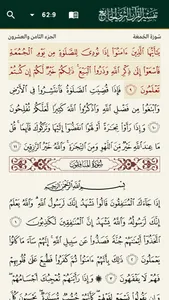 تفسير القرآن الثري الجامع
62:9
سورة الجمعة
الجزء الثامن والعشرون
يَٰٓأَيُّهَا ٱلَّذِينَ ءَامَنُوٓا۟ إِذَا نُودِىَ لِلصَّلَوٰةِ مِن يَوْمِ ٱلْجُمُعَةِ
فَٱسْعَوْا۟ إِلَىٰ ذِكْرِ ٱللَّهِ وَذَرُوا۟ ٱلْبَيْعَ ذَٰلِكُمْ خَيْرٌ لَّكُمْ إِن كُنتُمْ
تَعْلَمُونَ ٩ فَإِذَا قُضِيَتِ ٱلصَّلَوٰةُ فَٱنتَشِرُوا۟ فِى ٱلْأَرْضِ
وَٱبْتَغُوا۟ مِن فَضْلِ ٱللَّهِ وَٱذْكُرُوا۟ ٱللَّهَ كَثِيرًا لَّعَلَّكُمْ تُفْلِحُونَ
١٠ وَإِذَا رَأَوْا۟ تِجَٰرَةً أَوْ لَهْوًا ٱنفَضُّوٓا۟ إِلَيْهَا وَتَرَكُوكَ قَآئِمًا قُلْ مَا
عِندَ ٱللَّهِ خَيْرٌ مِّنَ ٱللَّهْوِ وَمِنَ ٱلتِّجَٰرَةِ وَٱللَّهُ خَيْرُ ٱلرَّٰزِقِينَ ١١
سُورَةُ المُنَافِقُونَ
بِسْمِ ٱللَّهِ ٱلرَّحْمَٰنِ ٱلرَّحِيمِ
إِذَا جَآءَكَ ٱلْمُنَٰفِقُونَ قَالُوا۟ نَشْهَدُ إِنَّكَ لَرَسُولُ ٱللَّهِ وَٱللَّهُ يَعْلَمُ
إِنَّكَ لَرَسُولُهُۥ وَٱللَّهُ يَشْهَدُ إِنَّ ٱلْمُنَٰفِقِينَ لَكَٰذِبُونَ ١
ٱتَّخَذُوٓا۟ أَيْمَٰنَهُمْ جُنَّةً فَصَدُّوا۟ عَن سَبِيلِ ٱللَّهِ إِنَّهُمْ سَآءَ مَا كَانُوا۟
يَعْمَلُونَ ٢ ذَٰلِكَ بِأَنَّهُمْ ءَامَنُوا۟ ثُمَّ كَفَرُوا۟ فَطُبِعَ عَلَىٰ قُلُوبِهِمْ
فَهُمْ لَا يَفْقَهُونَ ٣ وَإِذَا رَأَيْتَهُمْ تُعْجِبُكَ أَجْسَامُهُمْ